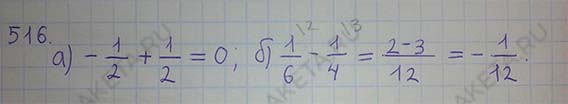 516.
а) -1/2 + 1/2 = 0; б) 1/6 ¹² - 1/4 ¹³ = 2-3/12 = -1/12.